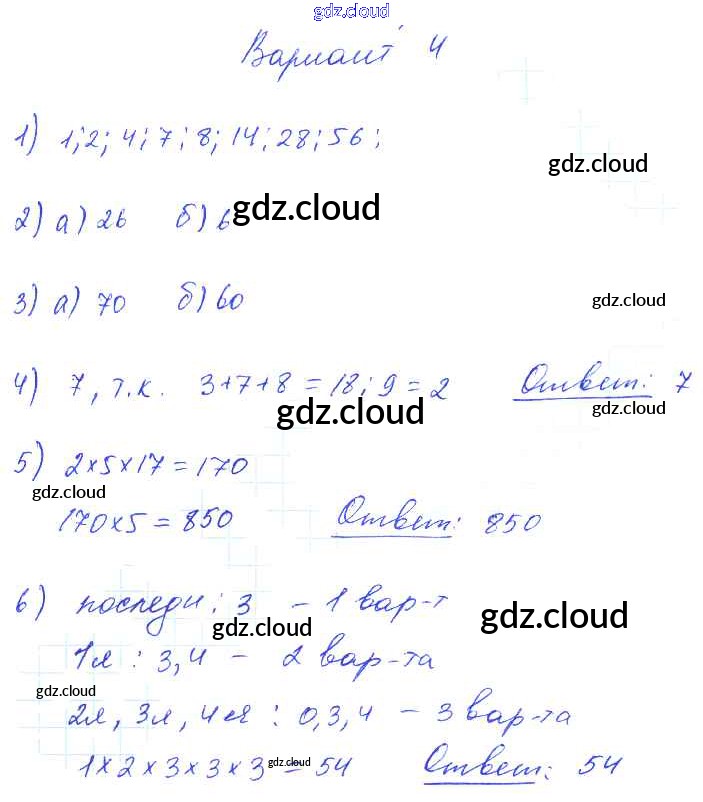 gdz.cloud
Вариант 4
1) 1; 2; 4; 7; 8; 14; 28; 56;
gdz.cloud
2) а) 26 б) 6
gdz.cloud
3) а) 70 б) 60
gdz.cloud
4) 7, т.к. 3+7+8 = 18 : 9 = 2 Ответ: 7
gdz.cloud
gdz.cloud
5) 2×5×17 = 170
gdz.cloud
170×5 = 850 Ответ: 850
6) последн: 3 – 1 вар-т
gdz.cloud
gdz.cloud
1я : 3,4 – 2 вар-та
gdz.cloud
2я, 3я, 4ая : 0,3,4 – 3 вар-та
1×2×3×3×3 = 54 Ответ: 54
gdz.cloud